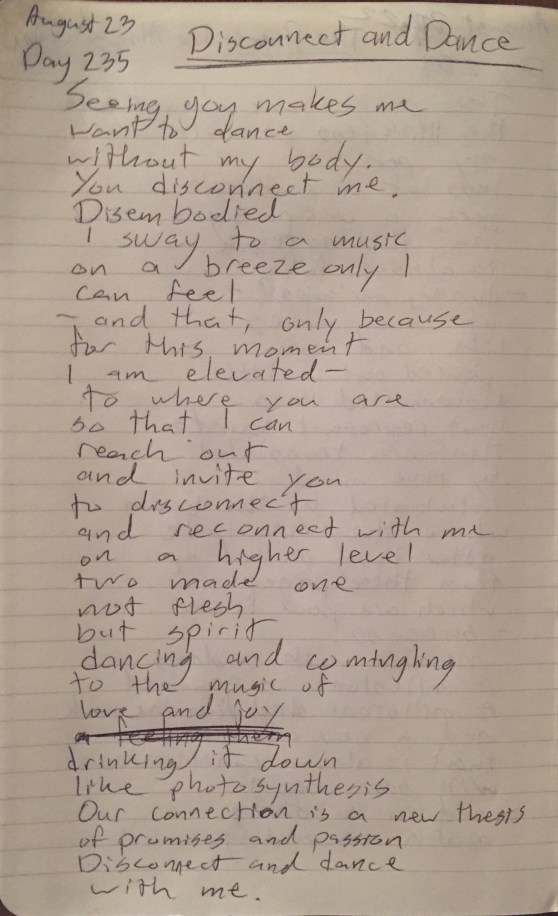 August 23
Day 235
Disconnect and Dance
Seeing you makes me
want to dance
without my body.
You disconnect me.
Disembodied
I sway to a music
on a breeze only I
can feel
- and that, only because
for this moment
I am elevated-
to where you are
so that I can
reach out
and invite you
to disconnect
and reconnect with me
on a higher level
two made one
not flesh
but spirit
dancing and comingling
to the music of
love and joy
feeling them
drinking it down
like photosynthesis
Our connection is a new thesis
of promises and passion
Disconnect and dance
with me.